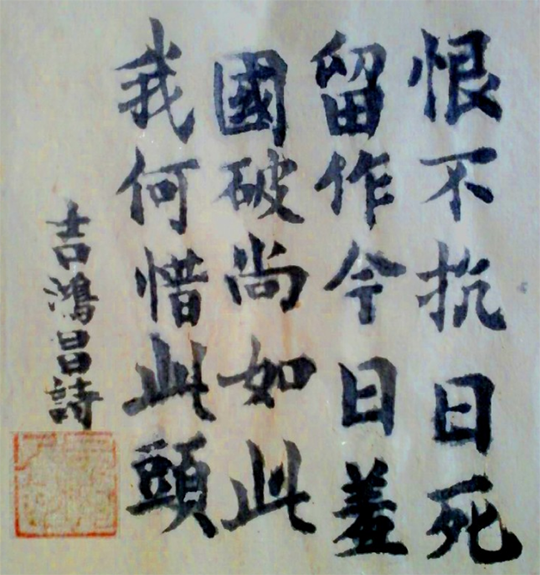 恨不抗日死
留作今日羞
國破尚如此
我何惜此頭
吉鴻昌詩